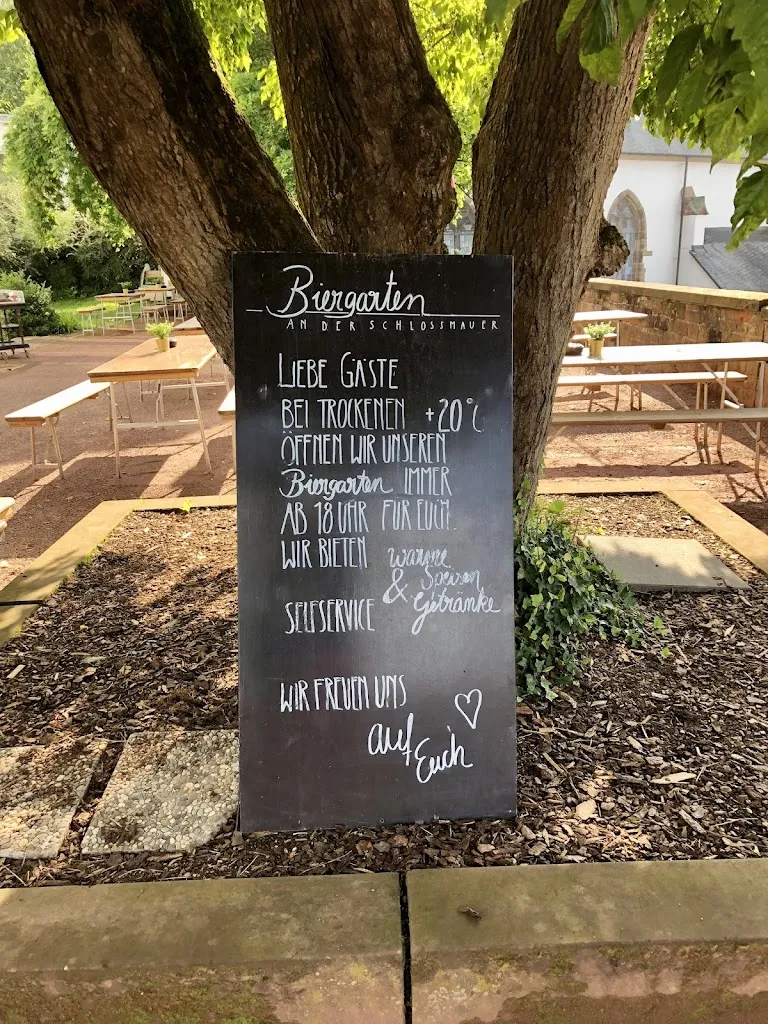 Biergarten
AN DER SCHLOSSMAUER
LIEBE GÄSTE
BEI TROCKENEN +20°C
ÖFFNEN WIR UNSEREN
Biergarten IMMER
AB 18 UHR FÜR EUCH.
WIR BIETEN warme
Speisen
& Getränke
SELFSERVICE
WIR FREUEN UNS
auf
Euch